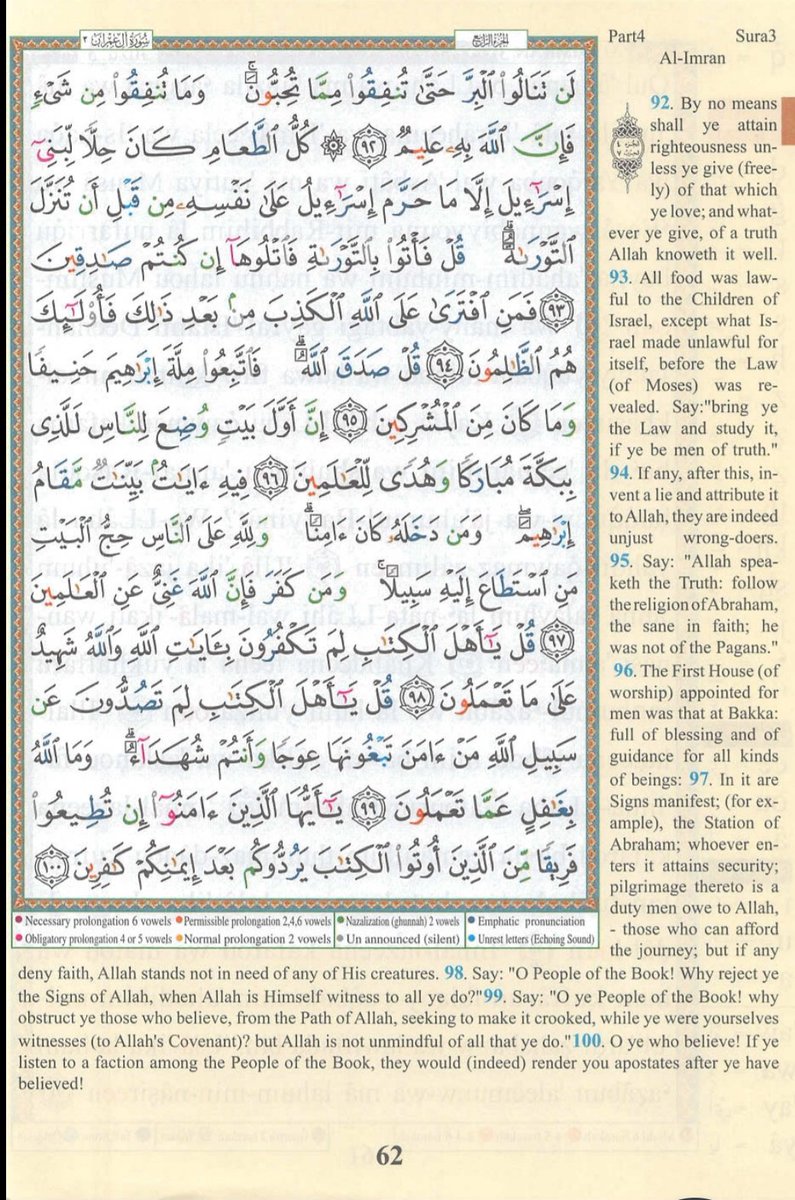 سُورَةُ آلِ عِمْرَان ٣
الجزء الرابع
Part4 Sura3
Al-Imran
لَن تَنَالُوا۟ ٱلْبِرَّ حَتَّىٰ تُنفِقُوا۟ مِمَّا تُحِبُّونَ ۚ وَمَا تُنفِقُوا۟ مِن شَىْءٍ
فَإِنَّ ٱللَّهَ بِهِۦ عَلِيمٌ ٩٢ ۞ كُلُّ ٱلطَّعَامِ كَانَ حِلًّا لِّبَنِىٓ
إِسْرَٰٓءِيلَ إِلَّا مَا حَرَّمَ إِسْرَٰٓءِيلُ عَلَىٰ نَفْسِهِۦ مِن قَبْلِ أَن تُنَزَّلَ
ٱلتَّوْرَىٰةُ ۗ قُلْ فَأْتُوا۟ بِٱلتَّوْرَىٰةِ فَٱتْلُوهَآ إِن كُنتُمْ صَـٰدِقِينَ
٩٣ فَمَنِ ٱفْتَرَىٰ عَلَى ٱللَّهِ ٱلْكَذِبَ مِنۢ بَعْدِ ذَٰلِكَ فَأُو۟لَـٰٓئِكَ
هُمُ ٱلظَّـٰلِمُونَ ٩٤ قُلْ صَدَقَ ٱللَّهُ ۗ فَٱتَّبِعُوا۟ مِلَّةَ إِبْرَٰهِيمَ حَنِيفًا
وَمَا كَانَ مِنَ ٱلْمُشْرِكِينَ ٩٥ إِنَّ أَوَّلَ بَيْتٍ وُضِعَ لِلنَّاسِ لَلَّذِى
بِبَكَّةَ مُبَارَكًا وَهُدًى لِّلْعَـٰلَمِينَ ٩٦ فِيهِ ءَايَـٰتٌۢ بَيِّنَـٰتٌ مَّقَامُ
إِبْرَٰهِيمَ ۖ وَمَن دَخَلَهُۥ كَانَ ءَامِنًا ۗ وَلِلَّهِ عَلَى ٱلنَّاسِ حِجُّ ٱلْبَيْتِ
مَنِ ٱسْتَطَاعَ إِلَيْهِ سَبِيلًا ۚ وَمَن كَفَرَ فَإِنَّ ٱللَّهَ غَنِىٌّ عَنِ ٱلْعَـٰلَمِينَ
٩٧ قُلْ يَـٰٓأَهْلَ ٱلْكِتَـٰبِ لِمَ تَكْفُرُونَ بِـَٔايَـٰتِ ٱللَّهِ وَٱللَّهُ شَهِيدٌ
عَلَىٰ مَا تَعْمَلُونَ ٩٨ قُلْ يَـٰٓأَهْلَ ٱلْكِتَـٰبِ لِمَ تَصُدُّونَ عَن
سَبِيلِ ٱللَّهِ مَنْ ءَامَنَ تَبْغُونَهَا عِوَجًا وَأَنتُمْ شُهَدَآءُ ۗ وَمَا ٱللَّهُ
بِغَـٰفِلٍ عَمَّا تَعْمَلُونَ ٩٩ يَـٰٓأَيُّهَا ٱلَّذِينَ ءَامَنُوٓا۟ إِن تُطِيعُوا۟
فَرِيقًا مِّنَ ٱلَّذِينَ أُوتُوا۟ ٱلْكِتَـٰبَ يَرُدُّوكُم بَعْدَ إِيمَـٰنِكُمْ كَـٰفِرِينَ ١٠٠
92. By no means
shall ye attain
righteousness un-
less ye give (free-
ly) of that which
ye love; and what-
ever ye give, of a truth
Allah knoweth it well.
93. All food was law-
ful to the Children of
Israel, except what Is-
rael made unlawful for
itself, before the Law
(of Moses) was re-
vealed. Say:"bring ye
the Law and study it,
if ye be men of truth."
94. If any, after this, in-
vent a lie and attribute it
to Allah, they are indeed
unjust wrong-doers.
95. Say: "Allah spea-
keth the Truth: follow
the religion of Abraham,
the sane in faith; he
was not of the Pagans."
96. The First House (of
worship) appointed for
men was that at Bakka:
full of blessing and of
guidance for all kinds
of beings: 97. In it are
Signs manifest; (for ex-
ample), the Station of
Abraham; whoever en-
ters it attains security;
pilgrimage thereto is a
duty men owe to Allah,
- those who can afford
the journey; but if any
deny faith, Allah stands not in need of any of His creatures. 98. Say: "O People of the Book! Why reject ye
the Signs of Allah, when Allah is Himself witness to all ye do?"99. Say: "O ye People of the Book! why
obstruct ye those who believe, from the Path of Allah, seeking to make it crooked, while ye were yourselves
witnesses (to Allah's Covenant)? but Allah is not unmindful of all that ye do."100. O ye who believe! If ye
listen to a faction among the People of the Book, they would (indeed) render you apostates after ye have
believed!
Necessary prolongation 6 vowels Permissible prolongation 2,4,6 vowels Nazalization (ghunnah) 2 vowels Emphatic pronunciation
Obligatory prolongation 4 or 5 vowels Normal prolongation 2 vowels Un announced (silent) Unrest letters (Echoing Sound)
62